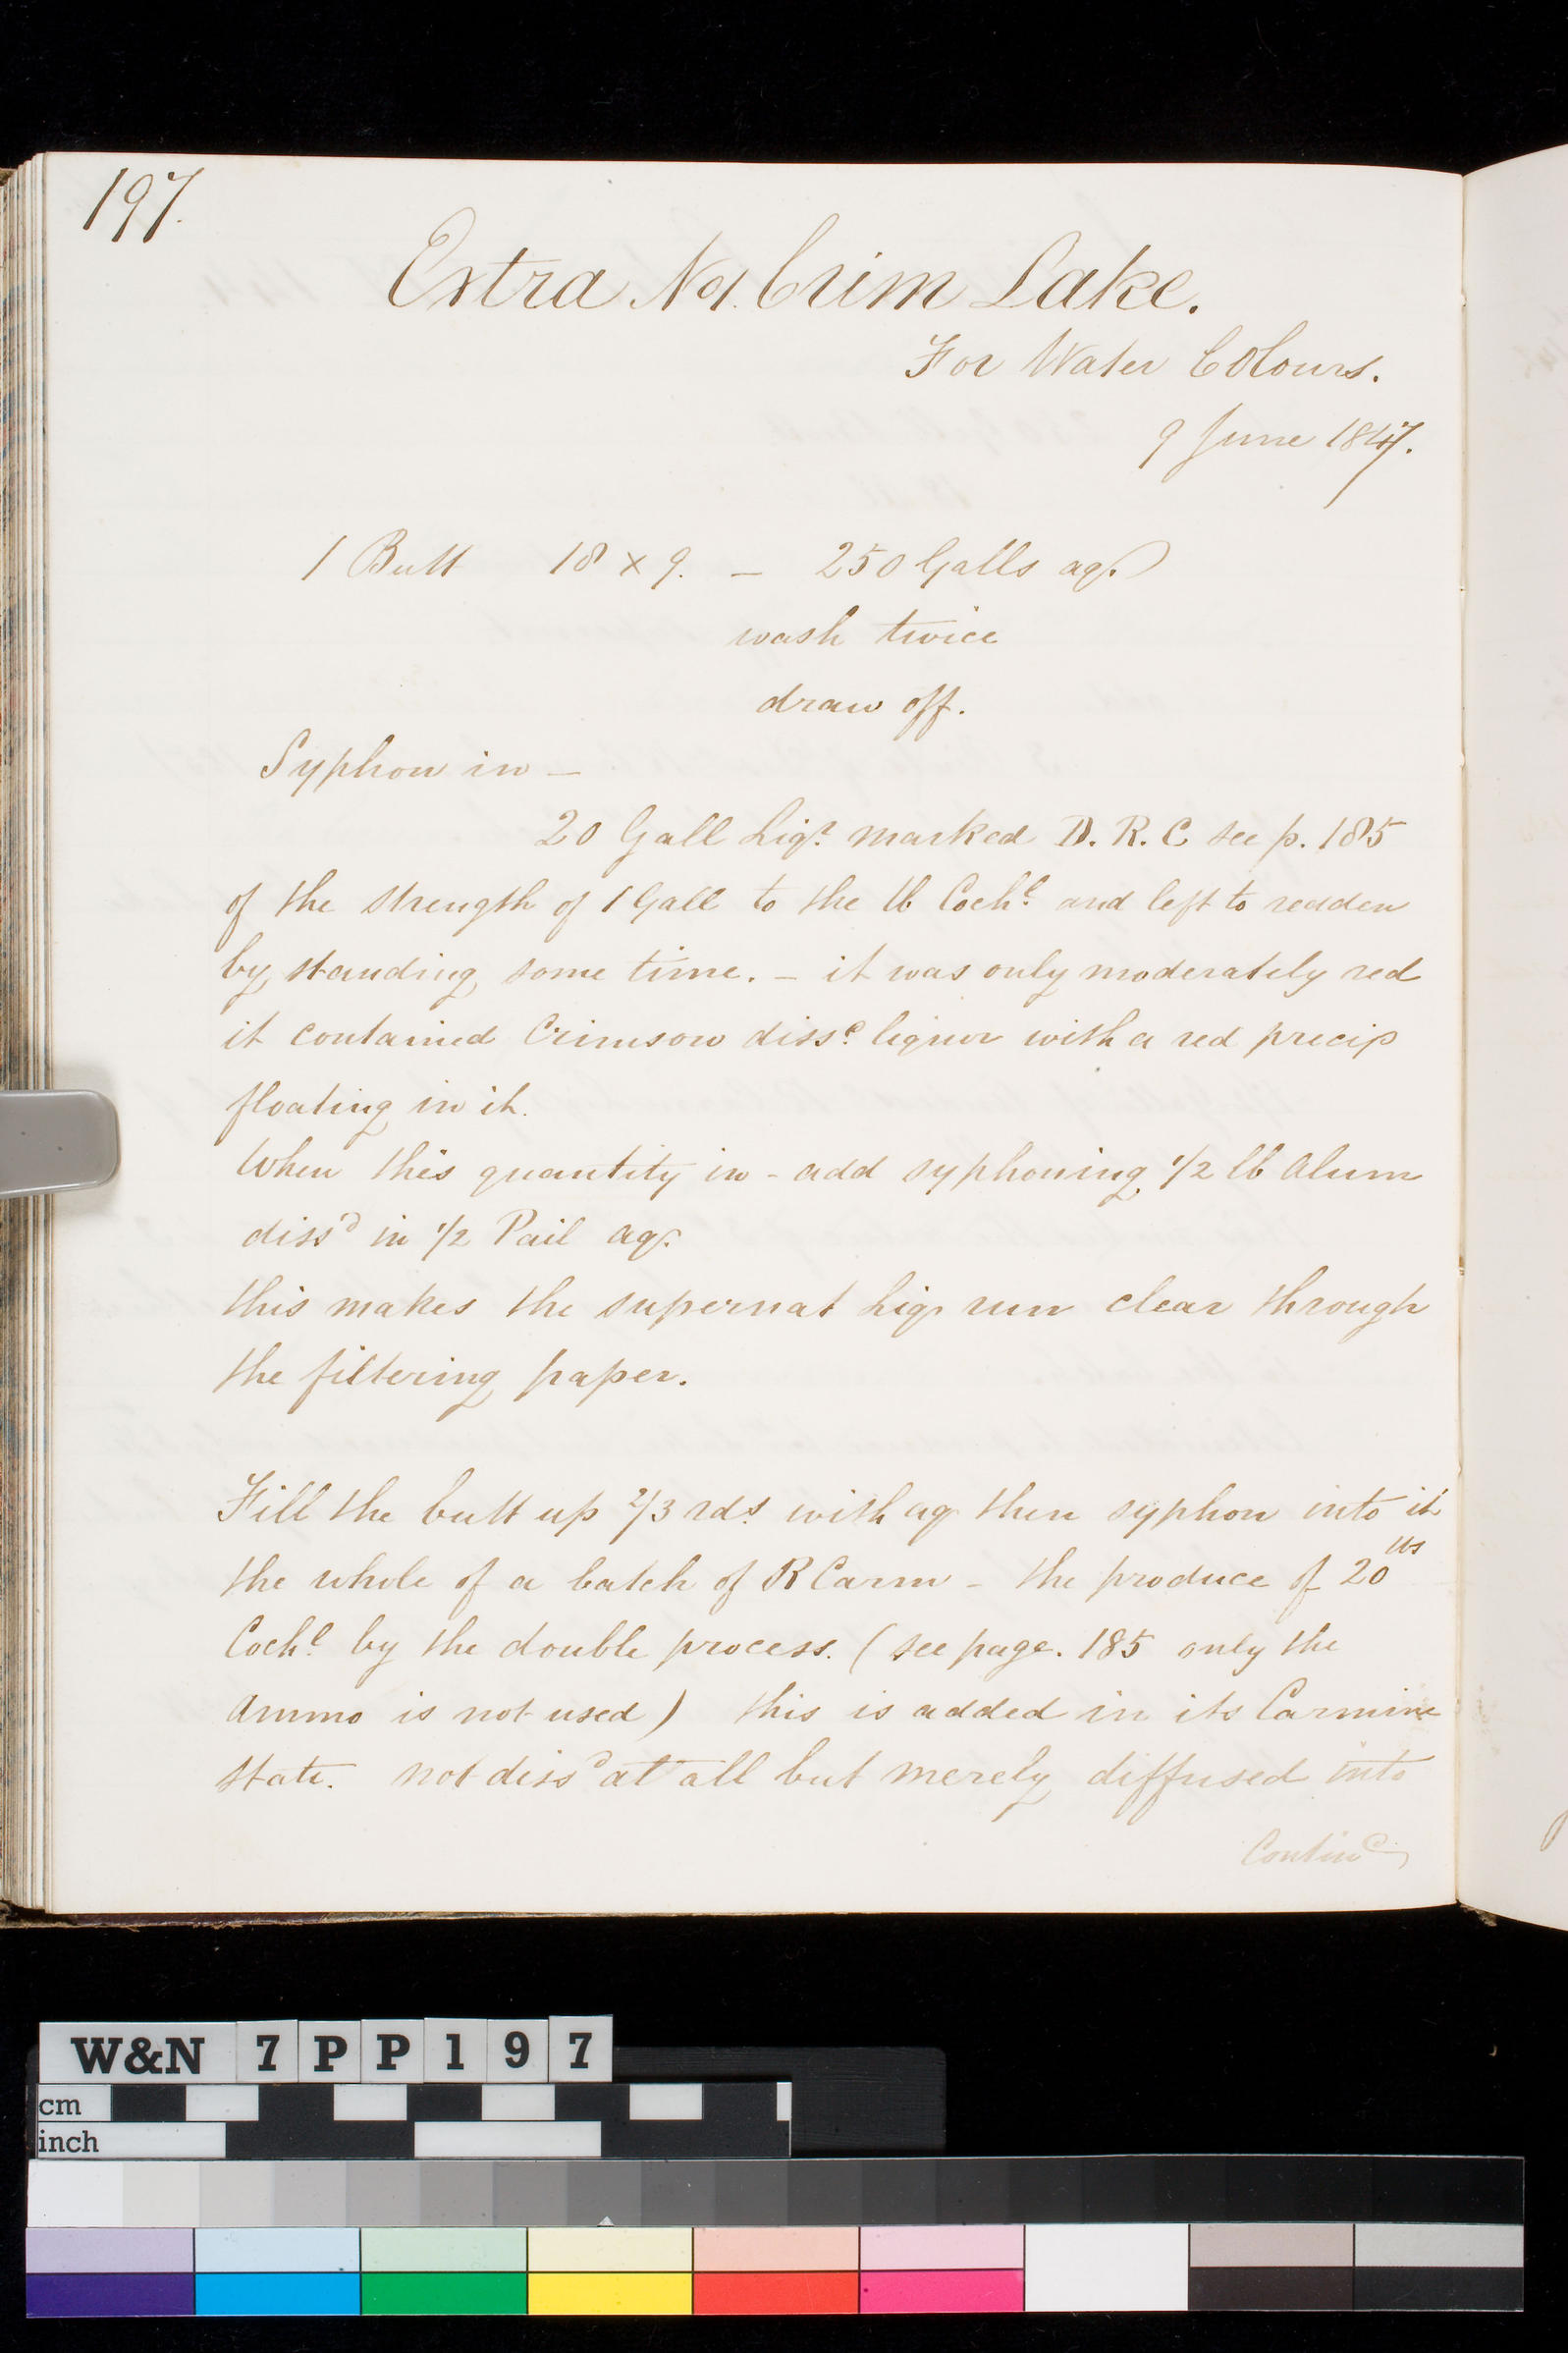 197.
Extra No1. Crim Lake.
For Water Colours.
9 June 1847.
1 Butt 18 x 9. — 250 Galls aq.
wash twice
draw off.
Syphon in —
20 Gall Liqr. marked D. R. C see p. 185
of the strength of 1 Gall to the lb Cochl. and left to redden
by standing some time. – it was only moderately red
it contained Crimson dissd. liquor with a red precip
floating in it.
When this quantity in – add syphoning 1/2 lb Alum
dissd in 1/2 Pail aq.
this makes the supernat Liq. run clear through
the filtering paper.
Fill the butt up 2/3 rds. with aq then syphon into it
the whole of a batch of R Carm – the produce of 20 lbs
Cochl. by the double process. (see page. 185 only the
Ammo is not used) this is added in its Carmine
state. not dissd at all but merely diffused into
Contind
W&N 7 P P 1 9 7
cm
inch